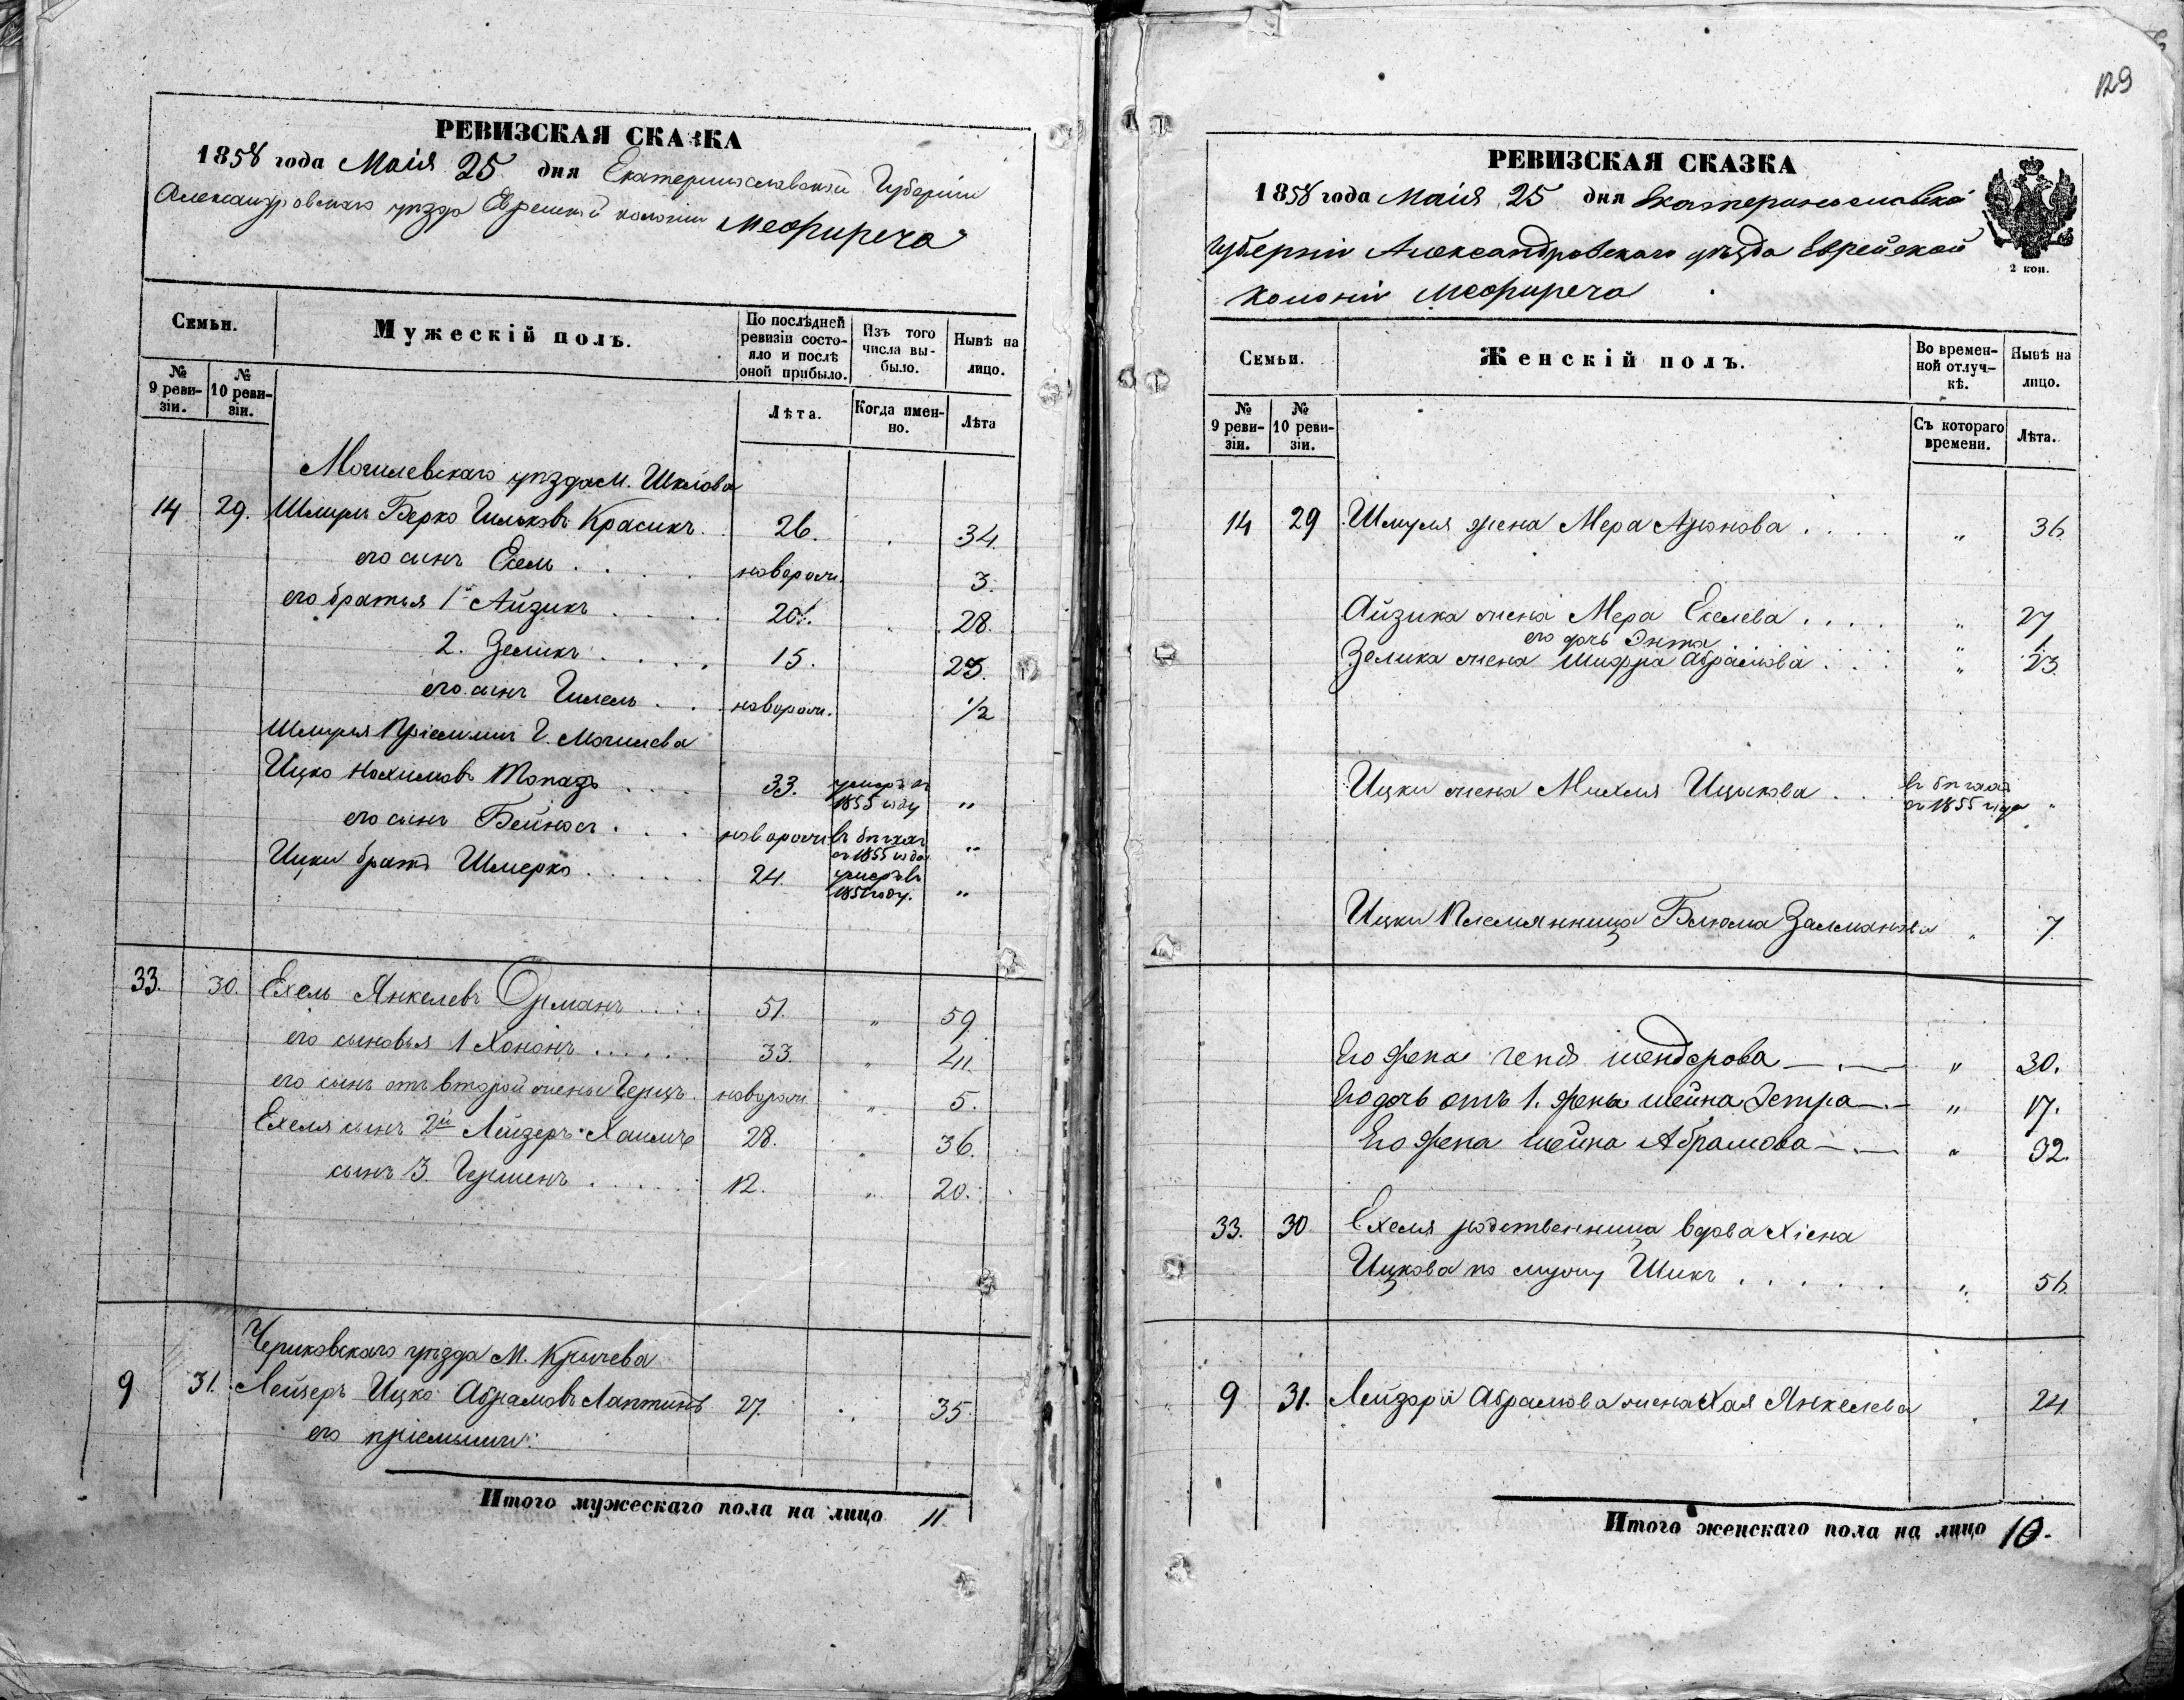 129
РЕВИЗСКАЯ СКАЗКА
1858 года Маія 25 дня Екатеринославской Губерніи
Александровскаго уѣзда Еврейской колоніи Межиреча
Семьи.
Мужескій полъ.
По послѣдней ревизіи состояло и послѣ оной прибыло.
Изъ того числа выбыло.
Нынѣ на лицо.
№ 9 ревизіи.
№ 10 ревизіи.
Лѣта.
Когда именно.
Лѣта
Могилевскаго уѣзда м. Шклова
14 29. Шмуль Берко Гильковъ Красикъ. 26. 34.
его сынъ Ехель . . . . новорож. 3.
его братья 1й Айзикъ . . . . 20. 28.
2. Зеликъ . . . . 15. 23.
его сынъ Гилель . . . новорож. 1/2
Шмуля Пріемыши Г. Могилева
Ицко Нохимовъ Топазъ . . . . 33. умеръ въ 1855 году „
его сынъ Бейносъ . . . . новорож. въ бѣгахъ съ 1855 года „
Ицки братъ Шмерко . . . . . 24. умеръ въ 1851 году. „
33. 30. Ехель Янкелевъ Орманъ . . . . 51. „ 59.
его сыновья 1 Хононъ . . . . . . 33. „ 41.
его сынъ отъ второй жены Герцъ. новорож. „ 5.
Ехеля сынъ 2й Лейзеръ Хаимъ 28. „ 36.
сынъ 3. Герменъ . . . . . 12. „ 20.
Чериковскаго уѣзда М. Кричева
9 31. Лейзеръ Ицко Абрамовъ Лаптинъ 27. „ 35.
его пріемыши:
Итого мужескаго пола на лицо 11.
РЕВИЗСКАЯ СКАЗКА
1858 года Маія 25 дня Екатеринославской
Губерніи Александровскаго уѣзда Еврейской
Колоніи Межиреча
2 коп.
Семьи.
Женскій полъ.
Во временной отлучкѣ.
Нынѣ на лицо.
№ 9 ревизіи.
№ 10 ревизіи.
Съ котораго времени.
Лѣта.
14 29 Шмуля жена Мера Аронова . . . . „ 36
Айзика жена Мера Ехелева . . . . „ 27
его дочь Энта „ 1.
Зелика жена Шифра Абрамова . . . „ 23.
Ицки жена Михля Ицкова . . въ бѣгахъ съ 1855 года „
Ицки Племянница Блюма Залманова „ 7
Его жена Генд Шендерова „ 30.
Его дочь отъ 1. жены Шейна Эстра „ 17.
Его жена Шейна Абрамова „ 32.
33. 30 Ехеля родственница вдова Хіена
Ицкова по мужу Шикъ . . . . . . „ 56
9 31. Лейзера Абрамова жена Хая Янкелева „ 24
Итого женскаго пола на лицо 10.